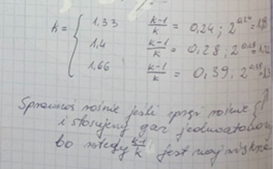 k = { 1,33 (k-1)/k = 0,24 ; 2^0,24 = 1,18
1,4 (k-1)/k = 0,28 ; 2^0,28 =
1,66 (k-1)/k = 0,39 ; 2
Sprawność rośnie jeśli spręż rośnie
i stosujemy gaz jednoatomowy
bo wtedy (k-1)/k jest największe